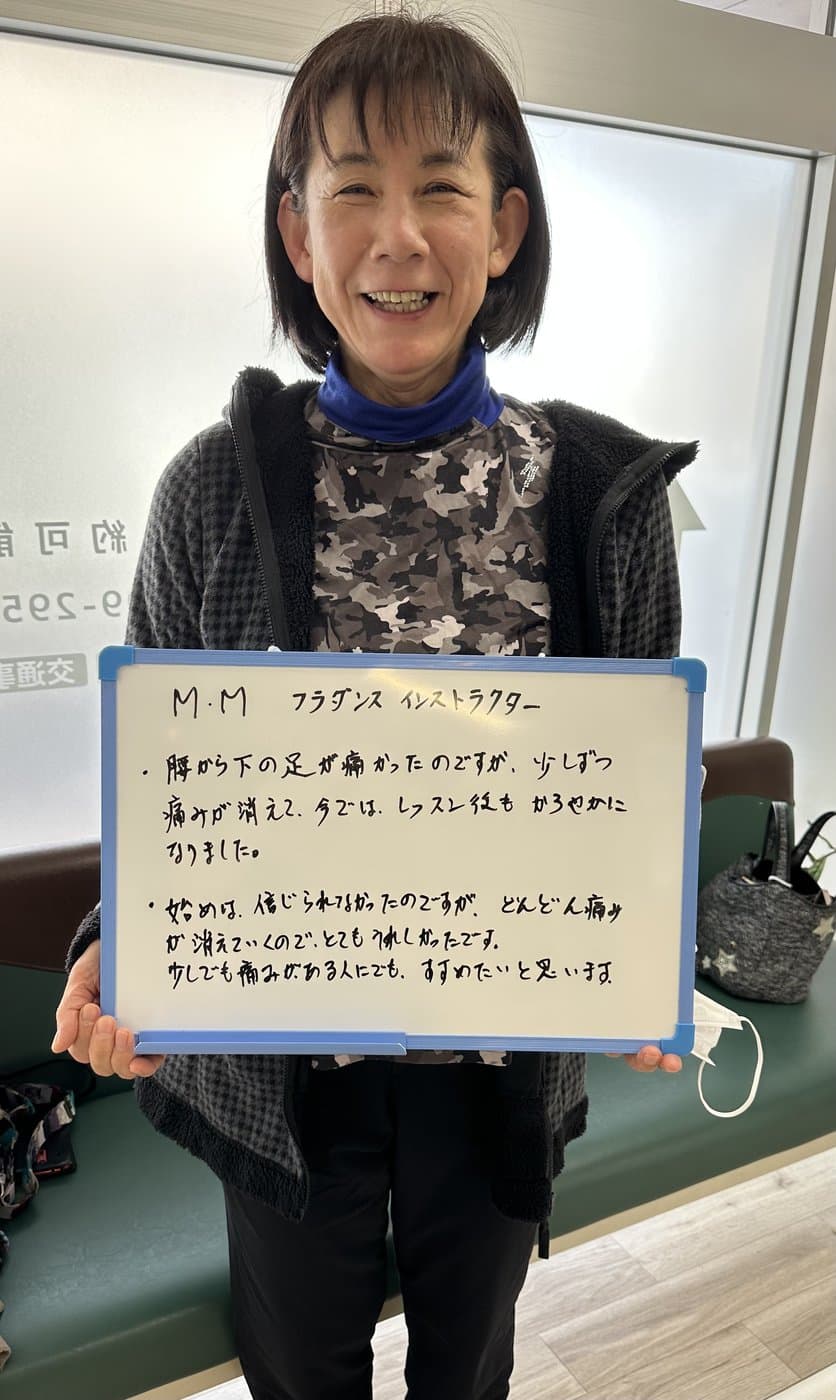 M.M フラダンス インストラクター
・腰から下の足が痛かったのですが、少しずつ
痛みが消えて、今では、レッスン後も かろやかに
なりました。
・始めは、信じられなかったのですが、どんどん痛み
が消えていくので、とてもうれしかったです。
少しでも痛みがある人にでも、すすめたいと思います。
約可能
9-295
交通事